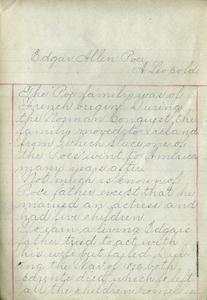 Edgar Allen Poe
A Leopold
The Poe family was of
French origin. During
the Norman Conquest the
family moved to Ireland
from which place one of
the Poes went to America
many years after
Not much is known of
Poe's father except that he
married an actress and
had five children.
To earn a living Edgar's
father tried to act with
his wife but failed.
ing the year of both
died, which left
all the children